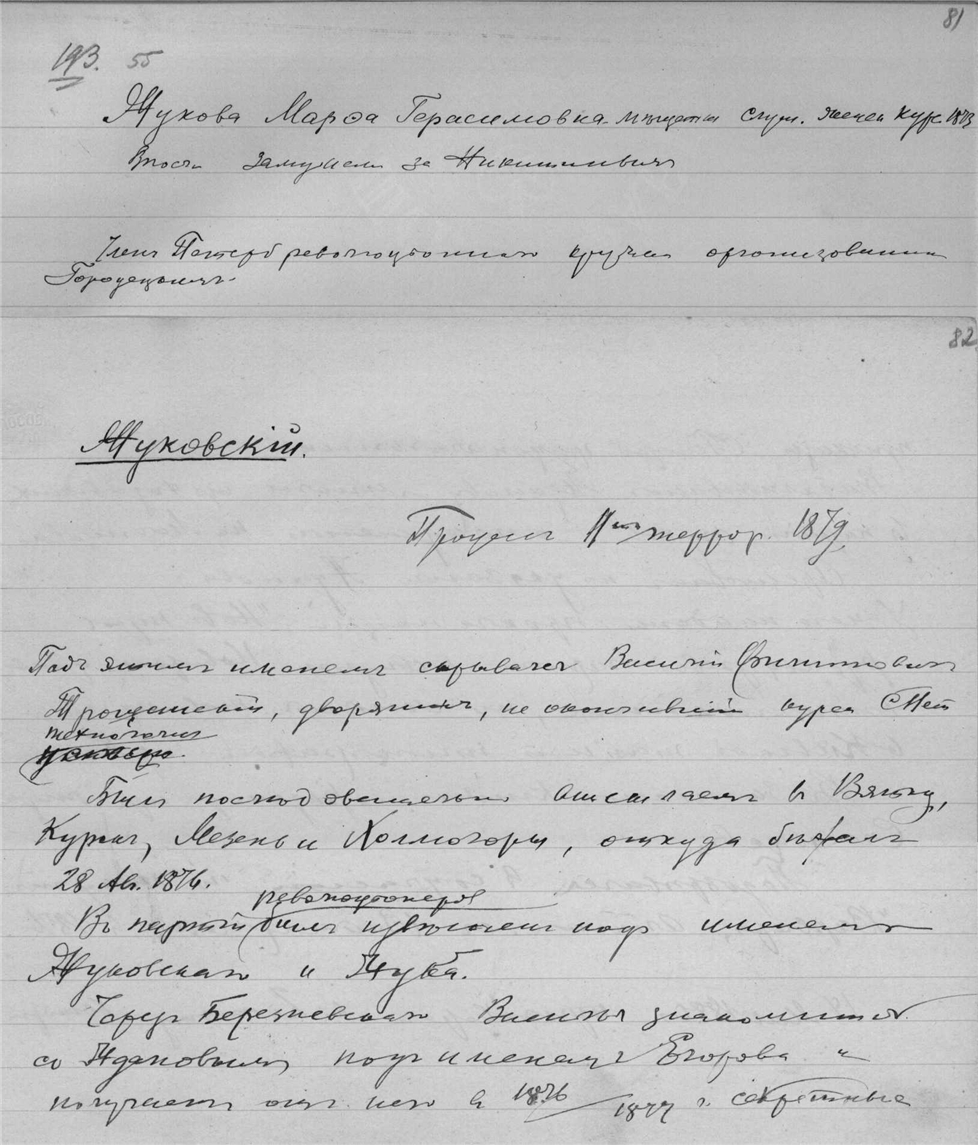 81
193. 55
Жукова Марѳа Герасимовна мѣщанка слуш. женск курс. 1873
Впосл. замужем за Никитинымъ
Членъ Петерб революціоннаго кружка организованнаго
Городецкимъ
82
Жуковскій.
Процессъ 11ти террор. 1879
Подъ этимъ именемъ скрывался Василій Филипповичъ
Трощанскій, дворянинъ, не окончившій курса СПет
технологич
Былъ последовательно высылаемъ в Вятку,
Курскъ, Мезень и Холмогоры, откуда бѣжалъ
28 Ав. 1876.
революціонеров
Въ партіи былъ извѣстенъ подъ именемъ
Жуковскаго и Жука.
Черезъ Березневскаго Василія знакомится
со Ждановымъ подъ именемъ Егорова и
получаетъ отъ него в 1876/1877 г. секретные